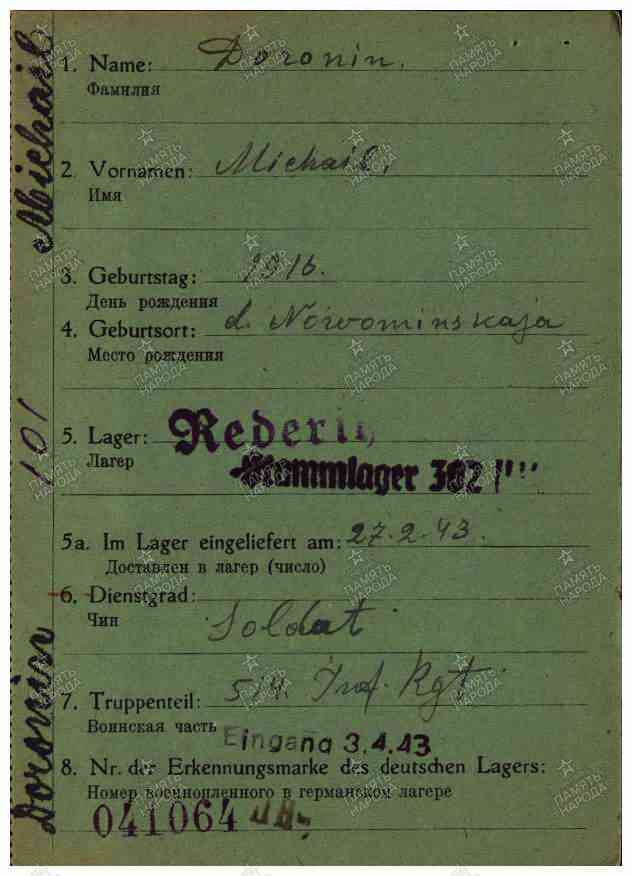 Michail
101
Doronin
1. Name: Doronin.
Фамилия
2. Vornamen: Michail.
Имя
3. Geburtstag: 1916.
День рождения
4. Geburtsort: d. Nowominskaja
Место рождения
5. Lager: Rederitz
Лагер
Stammlager 302
5a. Im Lager eingeliefert am: 27.2.43.
Доставлен в лагер (число)
6. Dienstgrad:
Чин
Soldat
7. Truppenteil: 514. Inf. Rgt.
Воинская часть
Eingang 3.4.43
8. Nr. der Erkennungsmarke des deutschen Lagers:
Номер военнопленного в германском лагере
041064
ПАМЯТЬ НАРОДА